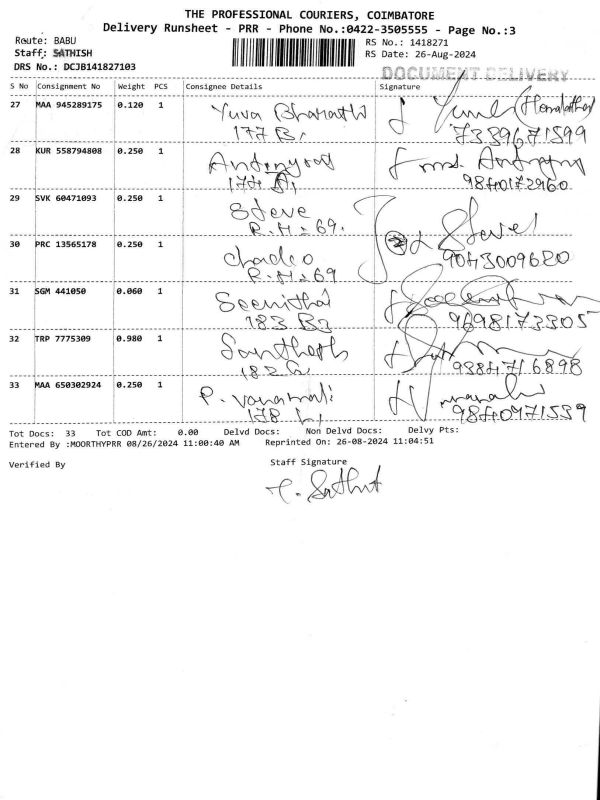 THE PROFESSIONAL COURIERS, COIMBATORE
Delivery Runsheet - PRR - Phone No.:0422-3505555 - Page No.:3
Route: BABU
RS No.: 1418271
Staff: SATHISH
RS Date: 26-Aug-2024
DRS No.: DCJB141827103
DOCUMENT DELIVERY
S No Consignment No Weight PCS Consignee Details Signature
27 MAA 945289175 0.120 1 Yuva Bharathi
177 B1 7339671599
28 KUR 558794808 0.250 1 Antonyraj
9840172960
29 SVK 60471093 0.250 1 Steve
R.H = 69.
30 PRC 13565178 0.250 1
R.H = 69 9043009620
31 SGM 441050 0.060 1
183 B2 9698173305
32 TRP 7775309 0.980 1 Santhosh
9384716898
33 MAA 650302924 0.250 1 P. Vanamali
178 9840971539
Tot Docs: 33 Tot COD Amt: 0.00 Delvd Docs: Non Delvd Docs: Delvy Pts:
Entered By :MOORTHYPRR 08/26/2024 11:00:40 AM Reprinted On: 26-08-2024 11:04:51
Verified By Staff Signature